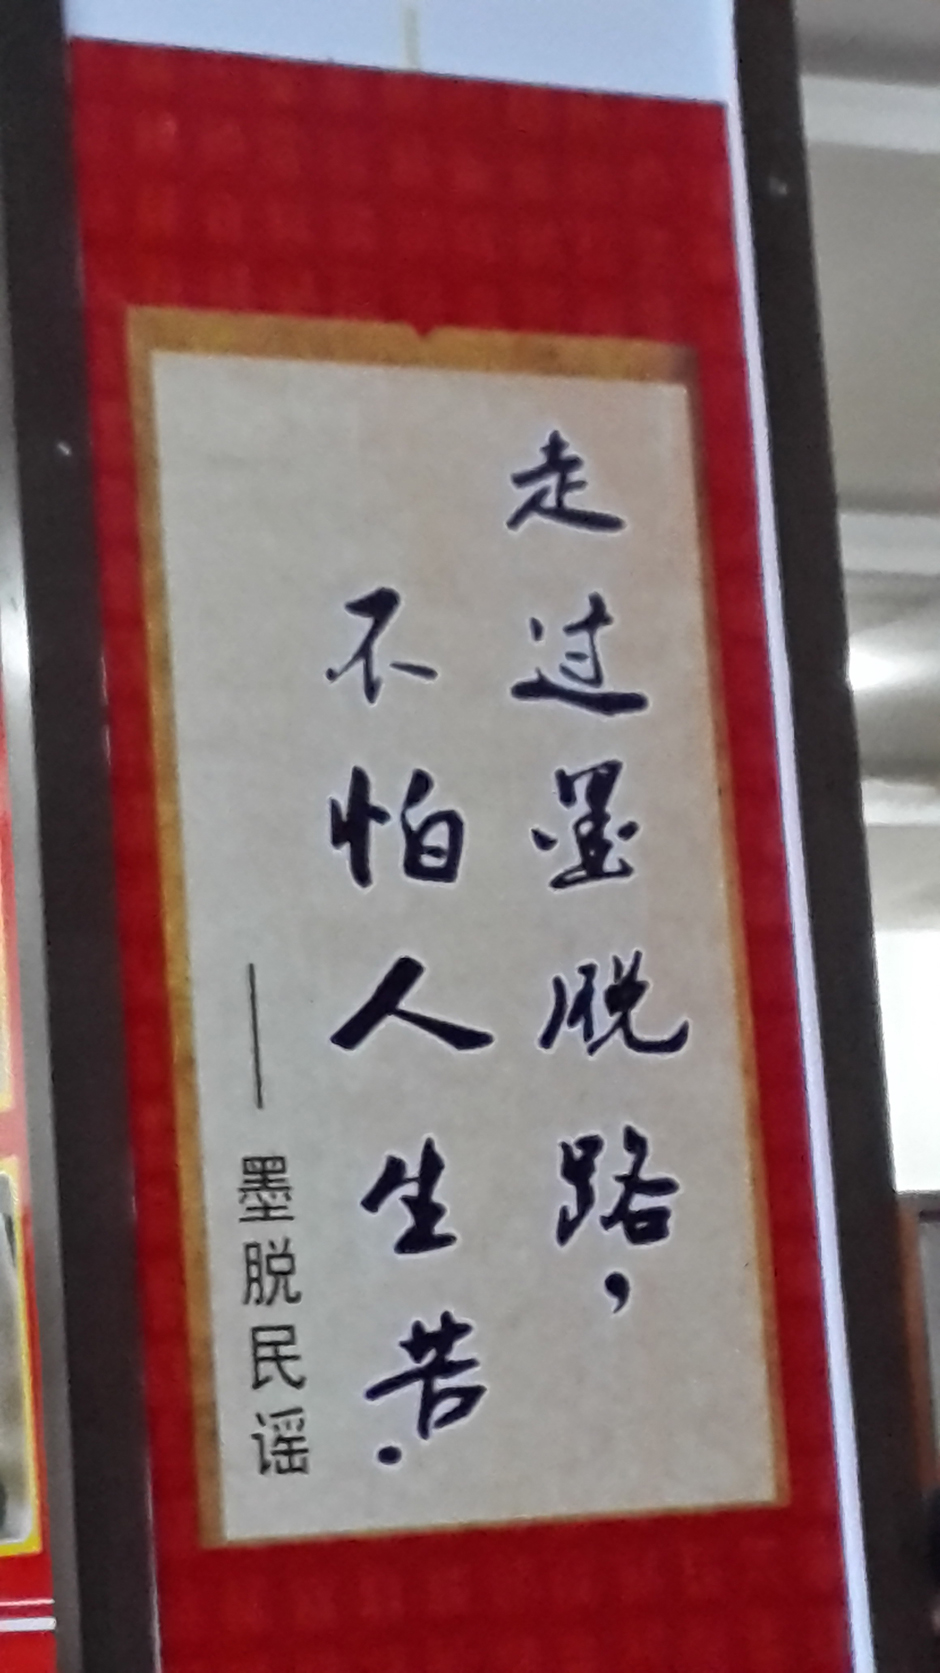 走过墨脱路，
不怕人生苦.
——墨脱民谣